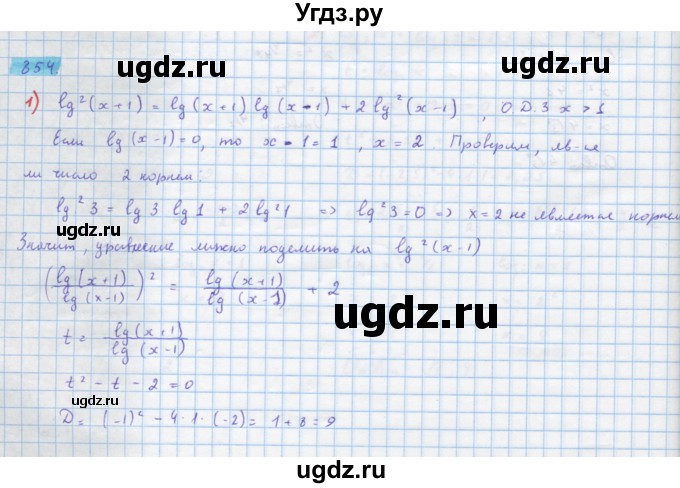 Угдз.ру
ugdz.ru ugdz.ru
854.
1) lg²(x+1) = lg(x+1) lg(x-1) + 2 lg²(x-1) , О.Д.З x > 1
Если lg(x-1)=0, то x-1=1 , x=2. Проверим, яв-ся
ugdz.ru
ли число 2 корнем:
lg²3 = lg3 lg1 + 2lg²1 => lg²3=0 => x=2 не является корнем
Значит, уравнение можно поделить на lg²(x-1)
ugdz.ru
(lg(x+1)/lg(x-1))² = lg(x+1)/lg(x-1) + 2
ugdz.ru
t = lg(x+1)/lg(x-1)
t² - t - 2 = 0
ugdz.ru
D = (-1)² - 4·1·(-2) = 1+8=9
ugdz.ru
ugdz.ru